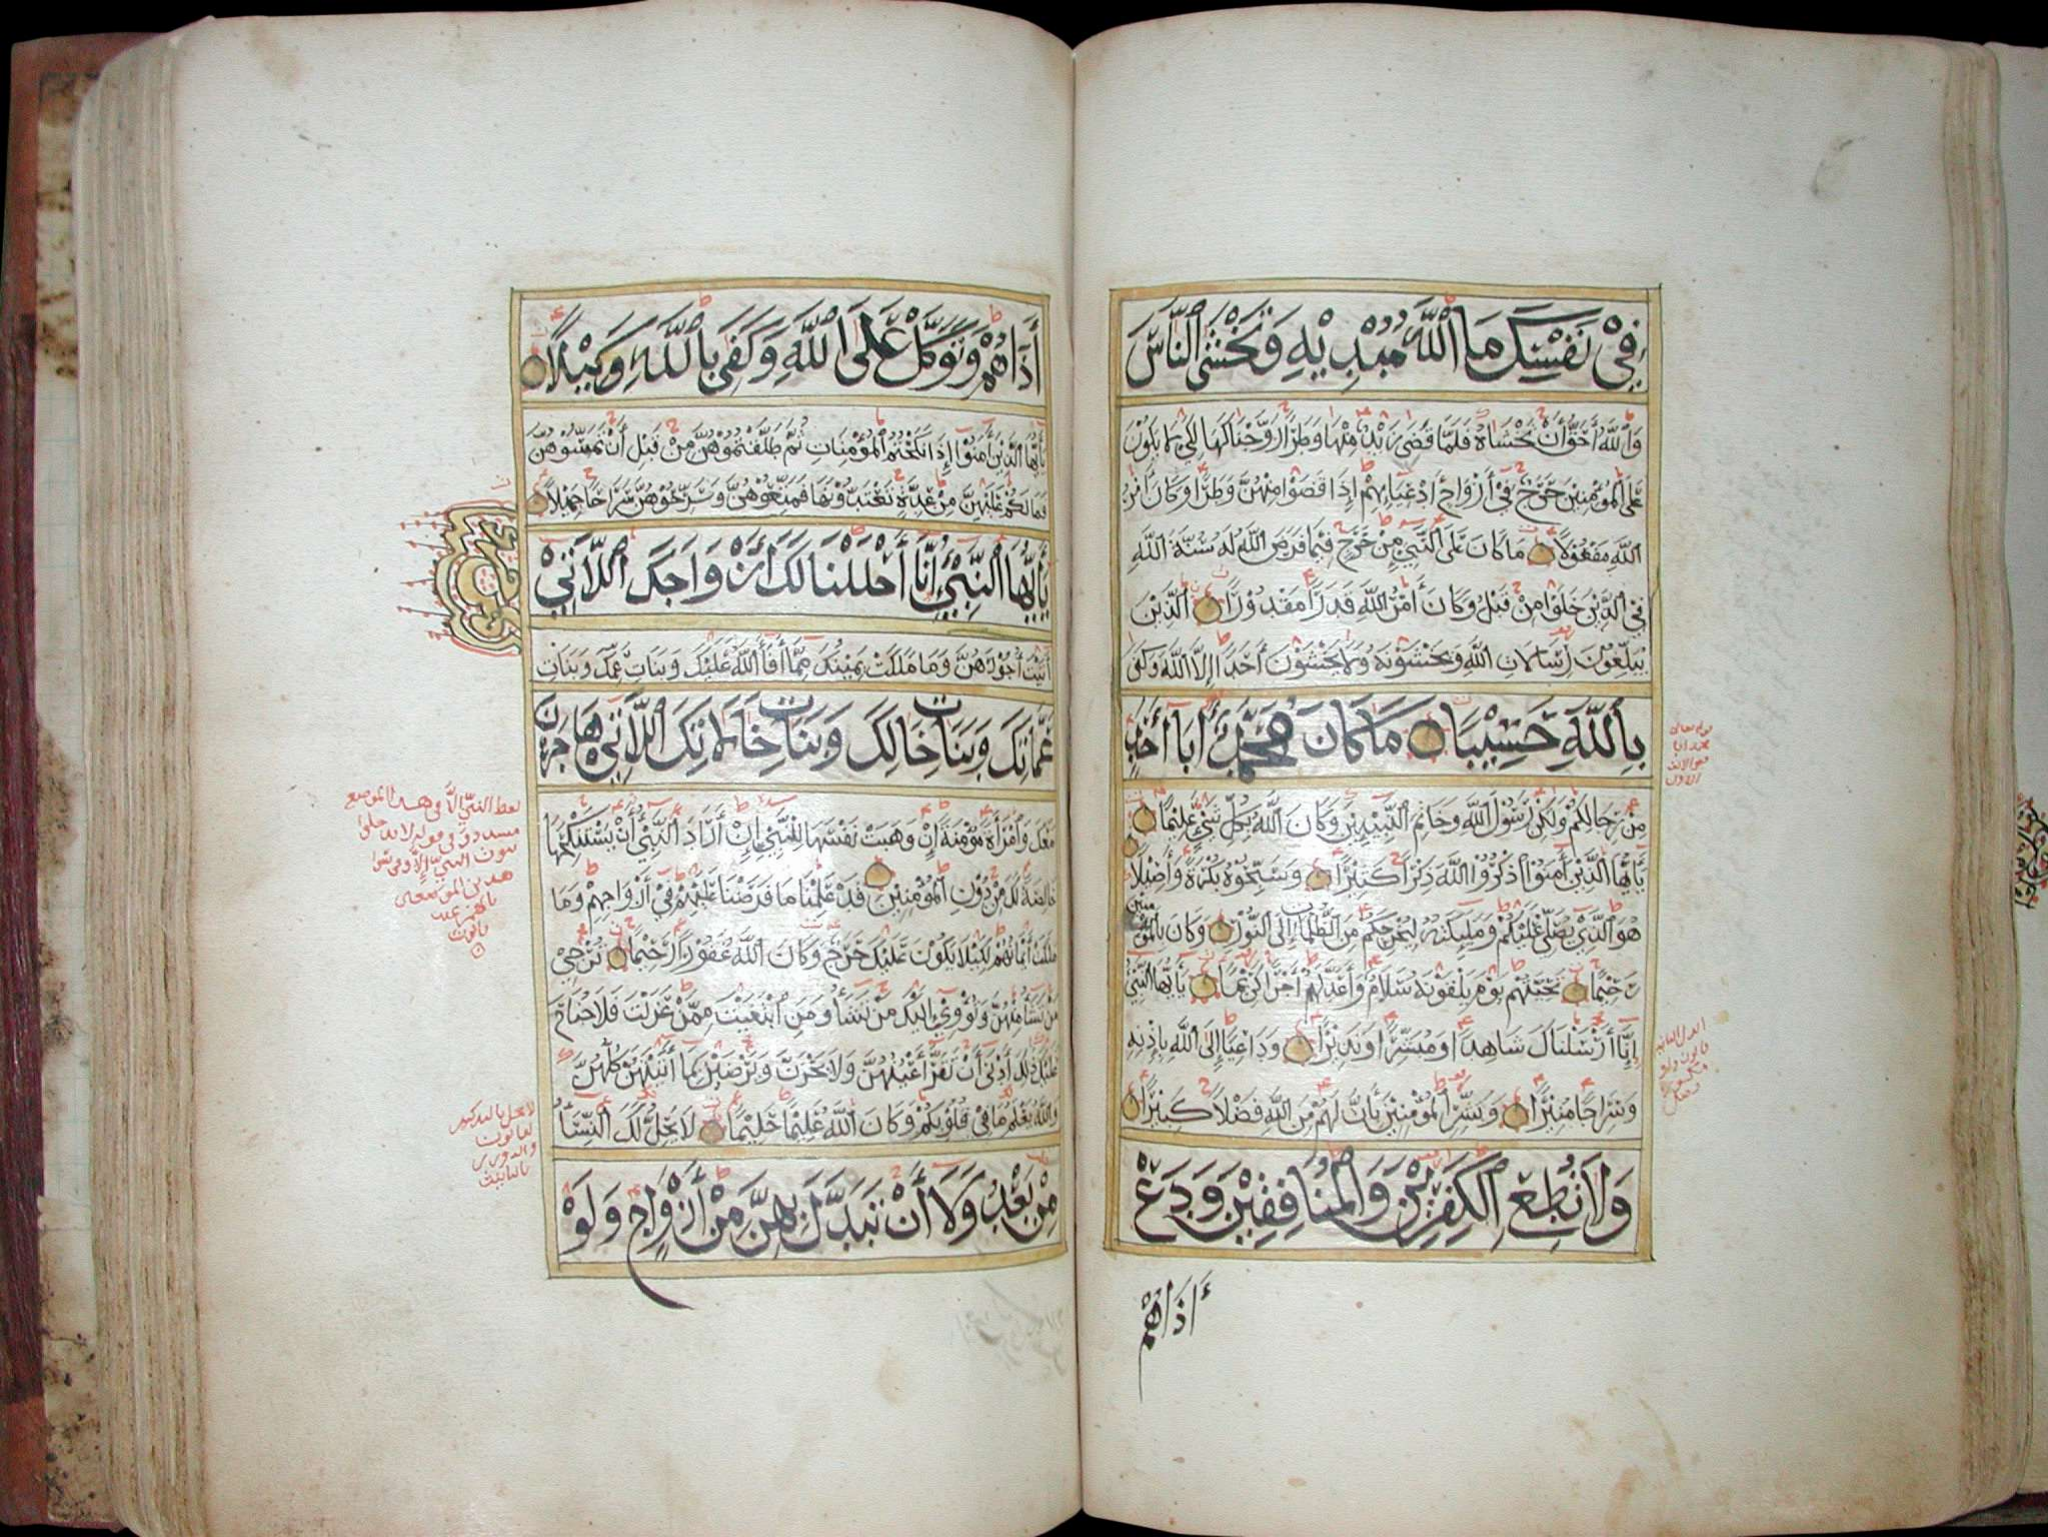 فِيْ نَفْسِكَ مَا اللّٰهُ مُبْدِيْهِ وَتَخْشَى النَّاسَ
وَاللّٰهُ أَحَقُّ أَنْ تَخْشَاهُ فَلَمَّا قَضَى زَيْدٌ مِنْهَا وَطَرًا زَوَّجْنَاكَهَا لِكَيْ لَا يَكُوْنَ
عَلَى الْمُؤْمِنِيْنَ حَرَجٌ فِيْ أَزْوَاجِ أَدْعِيَائِهِمْ إِذَا قَضَوْا مِنْهُنَّ وَطَرًا وَكَانَ أَمْرُ
اللّٰهِ مَفْعُوْلًا مَا كَانَ عَلَى النَّبِيِّ مِنْ حَرَجٍ فِيْمَا فَرَضَ اللّٰهُ لَهُ سُنَّةَ اللّٰهِ
فِيْ الَّذِيْنَ خَلَوْا مِنْ قَبْلُ وَكَانَ أَمْرُ اللّٰهِ قَدَرًا مَقْدُوْرًا الَّذِيْنَ
يُبَلِّغُوْنَ رِسَالَاتِ اللّٰهِ وَيَخْشَوْنَهُ وَلَا يَخْشَوْنَ أَحَدًا إِلَّا اللّٰهَ وَكَفَى
بِاللّٰهِ حَسِيْبًا مَا كَانَ مُحَمَّدٌ أَبَا أَحَدٍ
مِنْ رِجَالِكُمْ وَلَكِنْ رَسُوْلَ اللّٰهِ وَخَاتِمَ النَّبِيِّيْنَ وَكَانَ اللّٰهُ بِكُلِّ شَيْءٍ عَلِيْمًا
يَاأَيُّهَا الَّذِيْنَ أَمَنُوْا اذْكُرُوْا اللّٰهَ ذِكْرًا كَثِيْرًا وَسَبِّحُوْهُ بُكْرَةً وَأَصِيْلًا
هُوَ الَّذِيْ يُصَلِّيْ عَلَيْكُمْ وَمَلٰئِكَتُهُ لِيُخْرِجَكُمْ مِنَ الظُّلُمَاتِ إِلَى النُّوْرِ وَكَانَ بِالْمُؤْمِنِيْنَ
رَحِيْمًا تَحِيَّتُهُمْ يَوْمَ يَلْقَوْنَهُ سَلَامٌ وَأَعَدَّ لَهُمْ أَجْرًا كَرِيْمًا يَاأَيُّهَا النَّبِيُّ
إِنَّا أَرْسَلْنَاكَ شَاهِدًا وَمُبَشِّرًا وَنَذِيْرًا وَدَاعِيًا إِلَى اللّٰهِ بِإِذْنِهِ
وَسِرَاجًا مُنِيْرًا وَبَشِّرِ الْمُؤْمِنِيْنَ بِأَنَّ لَهُمْ مِنَ اللّٰهِ فَضْلًا كَبِيْرًا
وَلَا تُطِعِ الْكٰفِرِيْنَ وَالْمُنَافِقِيْنَ وَدَعْ
أَذَاهُمْ
أَذَاهُمْ وَتَوَكَّلْ عَلَى اللّٰهِ وَكَفَى بِاللّٰهِ وَكِيْلًا
يَاأَيُّهَا الَّذِيْنَ أَمَنُوْا إِذَا نَكَحْتُمُ الْمُؤْمِنَاتِ ثُمَّ طَلَّقْتُمُوْهُنَّ مِنْ قَبْلِ أَنْ تَمَسُّوْهُنَّ
فَمَا لَكُمْ عَلَيْهِنَّ مِنْ عِدَّةٍ تَعْتَدُّوْنَهَا فَمَتِّعُوْهُنَّ وَسَرِّحُوْهُنَّ سَرَاحًا جَمِيْلًا
يَاأَيُّهَا النَّبِيُّ إِنَّا أَحْلَلْنَا لَكَ أَزْوَاجَكَ اللَّاتِيْ
أَتَيْتَ أُجُوْرَهُنَّ وَمَا مَلَكَتْ يَمِيْنُكَ مِمَّا أَفَاءَ اللّٰهُ عَلَيْكَ وَبَنَاتِ عَمِّكَ وَبَنَاتِ
عَمَّاتِكَ وَبَنَاتِ خَالِكَ وَبَنَاتِ خَالَاتِكَ اللَّاتِيْ هَاجَرْنَ
مَعَكَ وَامْرَأَةً مُؤْمِنَةً إِنْ وَهَبَتْ نَفْسَهَا لِلنَّبِيِّ إِنْ أَرَادَ النَّبِيُّ أَنْ يَسْتَنْكِحَهَا
خَالِصَةً لَكَ مِنْ دُوْنِ الْمُؤْمِنِيْنَ قَدْ عَلِمْنَا مَا فَرَضْنَا عَلَيْهِمْ فِيْ أَزْوَاجِهِمْ وَمَا
مَلَكَتْ أَيْمَانُهُمْ لِكَيْلَا يَكُوْنَ عَلَيْكَ حَرَجٌ وَكَانَ اللّٰهُ غَفُوْرًا رَحِيْمًا تُرْجِيْ
مَنْ تَشَاءُ مِنْهُنَّ وَتُؤْوِيْ إِلَيْكَ مَنْ تَشَاءُ وَمَنِ ابْتَغَيْتَ مِمَّنْ عَزَلْتَ فَلَا جُنَاحَ
عَلَيْكَ ذٰلِكَ أَدْنَى أَنْ تَقَرَّ أَعْيُنُهُنَّ وَلَا يَحْزَنَّ وَيَرْضَيْنَ بِمَا أَتَيْتَهُنَّ كُلُّهُنَّ
وَاللّٰهُ يَعْلَمُ مَا فِيْ قُلُوْبِكُمْ وَكَانَ اللّٰهُ عَلِيْمًا حَلِيْمًا لَا يَحِلُّ لَكَ النِّسَاءُ
مِنْ بَعْدُ وَلَا أَنْ تَبَدَّلَ بِهِنَّ مِنْ أَزْوَاجٍ وَلَوْ